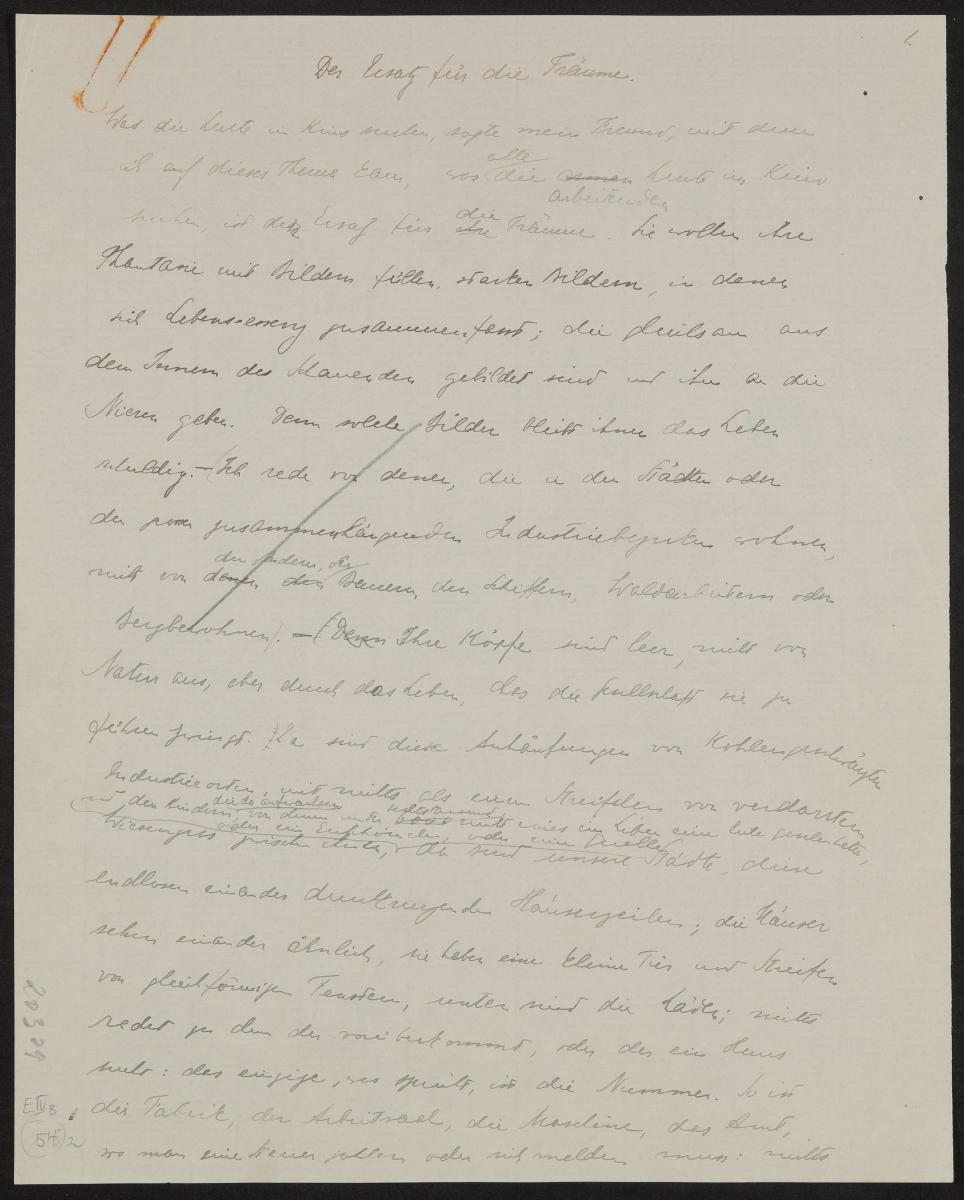 1.
Der Ersatz für die Träume.
Was die Leute im Kino suchen, sagte mein Freund, mit dem
ich auf dieses Thema kam, was alle die armen arbeitenden Leute im Kino
suchen, ist der Ersatz für ihre die Träume. Sie wollen ihre
Phantasie mit Bildern füllen, starken Bildern, in denen
sich Lebensessenz zusammenfasst; die gleichsam aus
dem Innern des Schauenden gebildet sind und ihm an die
Nieren gehen. Denn solche Bilder bleibt ihnen das Leben
schuldig. – (Ich rede von denen, die in den Städten oder
den zusammenhängenden Industriebezirken wohnen,
nicht von denen den den andern, den Bauern, den Schiffern, Waldarbeitern oder
Bergbewohnern). – (Denn Ihre Köpfe sind leer, nicht von
Natur aus, eher durch das Leben, das die Gesellschaft sie zu
führen zwingt. Da sind diese Anhäufungen von Kohlengeschwärzten
Industrieorten, mit nichts als einem Streifchen von verdorrtem
Wiesengras zwischen ihnen,
und den Kindern, die da aufwachsen, von denen unter nicht eines im Leben eine Eule gesehen hatte,
oder ein Eichhörnchen, oder eine Quelle
da sind unsere Städte, diese
endlosen einander durchkreuzenden Häuserzeilen; die Häuser
sehen einander ähnlich, sie haben eine kleine Tür und Streifen
von gleichförmigen Fenstern, unten sind die Läden; nichts
redet zu dem der vorüberkommt, oder der ein Haus
sucht: das einzige, was spricht, ist die Nummer. So ist
die Fabrik, der Arbeitsaal, die Maschine, das Amt,
wo man eine Steuer zahlen oder sich melden muss: nichts
20329
E IV B
54 2